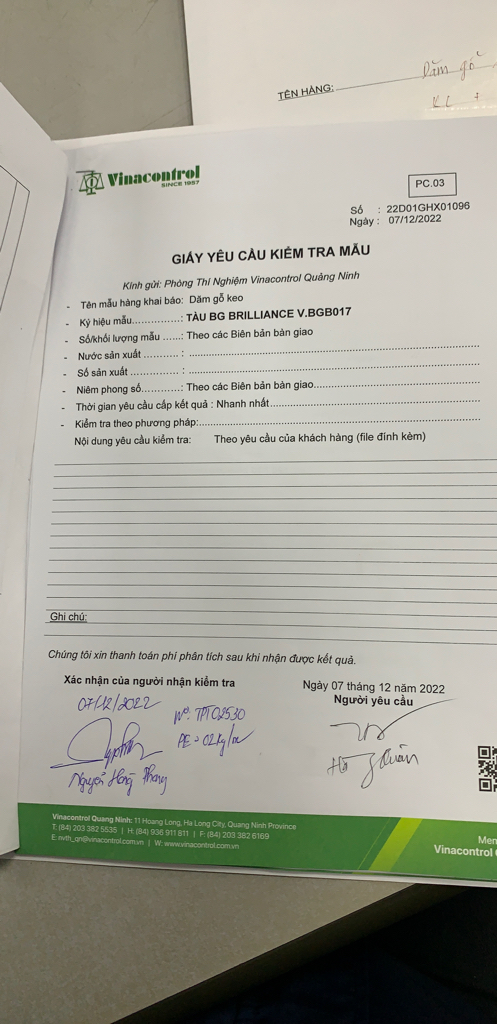 Dăm gỗ
TÊN HÀNG:
Vinacontrol
SINCE 1957
PC.03
Số : 22D01GHX01096
Ngày : 07/12/2022
GIẤY YÊU CẦU KIỂM TRA MẪU
Kính gửi: Phòng Thí Nghiệm Vinacontrol Quảng Ninh
- Tên mẫu hàng khai báo: Dăm gỗ keo
- Ký hiệu mẫu...............: TÀU BG BRILLIANCE V.BGB017
- Số/khối lượng mẫu ......: Theo các Biên bản bàn giao
- Nước sản xuất ........... : ....................
- Số sản xuất ............... : ....................
- Niêm phong số............: Theo các Biên bản bàn giao....................
- Thời gian yêu cầu cấp kết quả : Nhanh nhất....................
- Kiểm tra theo phương pháp:....................
Nội dung yêu cầu kiểm tra: Theo yêu cầu của khách hàng (file đính kèm)
Ghi chú:
Chúng tôi xin thanh toán phí phân tích sau khi nhận được kết quả.
Xác nhận của người nhận kiểm tra
Ngày 07 tháng 12 năm 2022
Người yêu cầu
07/12/2022
Nº: TPT02530
PE = 02kg/
Nguyễn Hồng Phong
Vinacontrol Quang Ninh: 11 Hoang Long, Ha Long City, Quang Ninh Province
T: (84) 203 382 5535 | H: (84) 936 911 811 | F: (84) 203 382 6169
E: nvth_qn@vinacontrol.com.vn | W: www.vinacontrol.com.vn
Vinacontrol